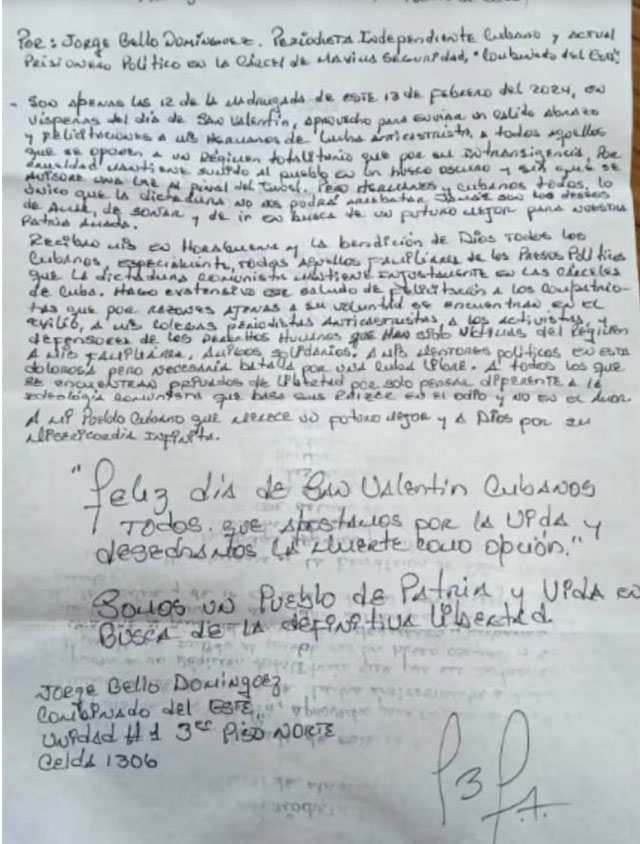 Por: Jorge Bello Domínguez. Periodista Independiente Cubano y actual
Prisionero Político en la Cárcel de Máxima Seguridad, "Combinado del Este".
- Son apenas las 12 de la madrugada de este 13 de febrero del 2024, en
vísperas del día de San Valentín, aprovecho para enviar un cálido abrazo
y felicitaciones a mis hermanos de lucha anticastrista, a todos aquellos
que se oponen a un Régimen totalitario que por su intransigencia, por
crueldad mantiene sumido al pueblo en un hueco oscuro y sin que se
avisore una luz al final del túnel. Pero hermanos y cubanos todos, lo
único que la dictadura no nos podrá arrebatar jamás son los deseos
de amar, de soñar y de ir en busca de un futuro mejor para nuestra
Patria amada.
Reciban mis en Horabuena y la bendición de Dios todos los
Cubanos, especialmente, todos aquellos familiares de los Presos Políticos
que la dictadura comunista mantiene injustamente en las cárceles
de Cuba. Hago extensivo ese saludo de felicitación a los compatrio-
tas que por razones ajenas a su voluntad se encuentran en el
exilio, a mis colegas periodistas anticastristas a los activistas, y
defensores de los Derechos Humanos que han sido víctimas del régimen
A mis familiares, amigos solidarios. A mis mentores políticos en esta
dolorosa pero necesaria batalla por una Cuba libre. A todos los que
se encuentran privados de libertad por solo pensar diferente a la
ideología comunista que basa sus raíces en el odio y no en el amor.
A mi Pueblo Cubano que merece un futuro mejor y a Dios por su
misericordia infinita.
"Feliz día de San Valentín Cubanos
todos. que apostamos por la vida y
desechamos la muerte como opción."
Somos un Pueblo de Patria y Vida en
Busca de la definitiva libertad.
Jorge Bello Domínguez
Combinado del Este,
Unidad #1 3er Piso Norte
Celda 1306